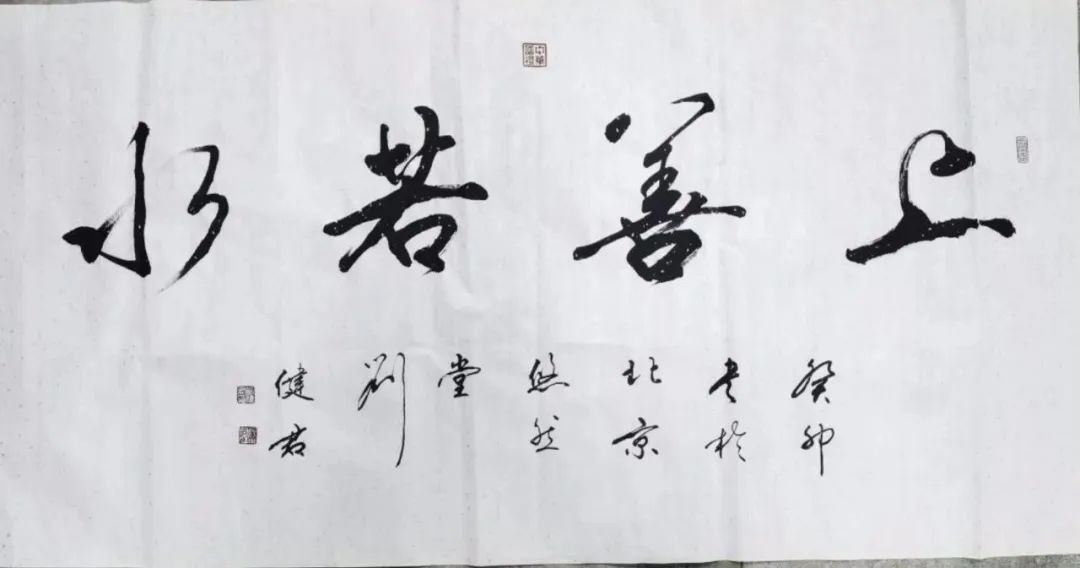 上善若水
癸卯
书於
北京
悠然
堂
刘
健君